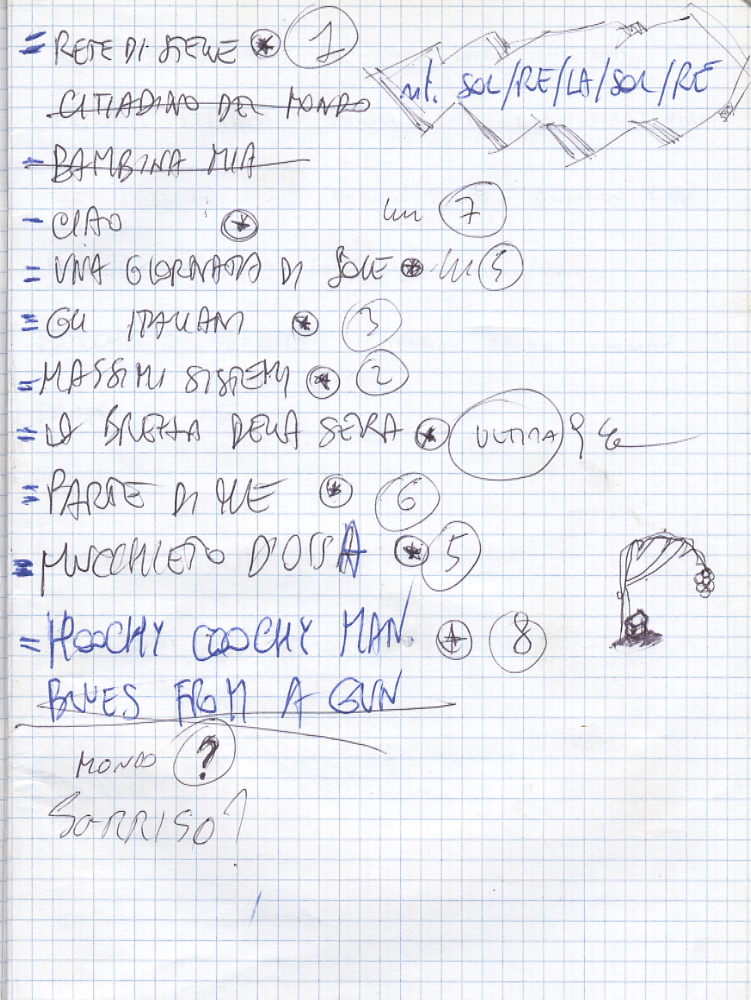 = RETE DI STELLE * 1
rit. SOL/RE/LA/SOL/RE
CITTADINO DEL MONDO
- BAMBINA MIA
- CIAO * 7
= UNA GIORNATA DI SOLE *
= GLI ITALIANI * 3
= MASSIMI SISTEMI * 2
= LA BREZZA DELLA SERA * ULTIMA
= PARTE DI ME * 6
= MUCCHIETTO D'OSSA * 5
= HOOCHY COOCHY MAN. * 8
BLUES FROM A GUN
MONDO ?
SORRISO?